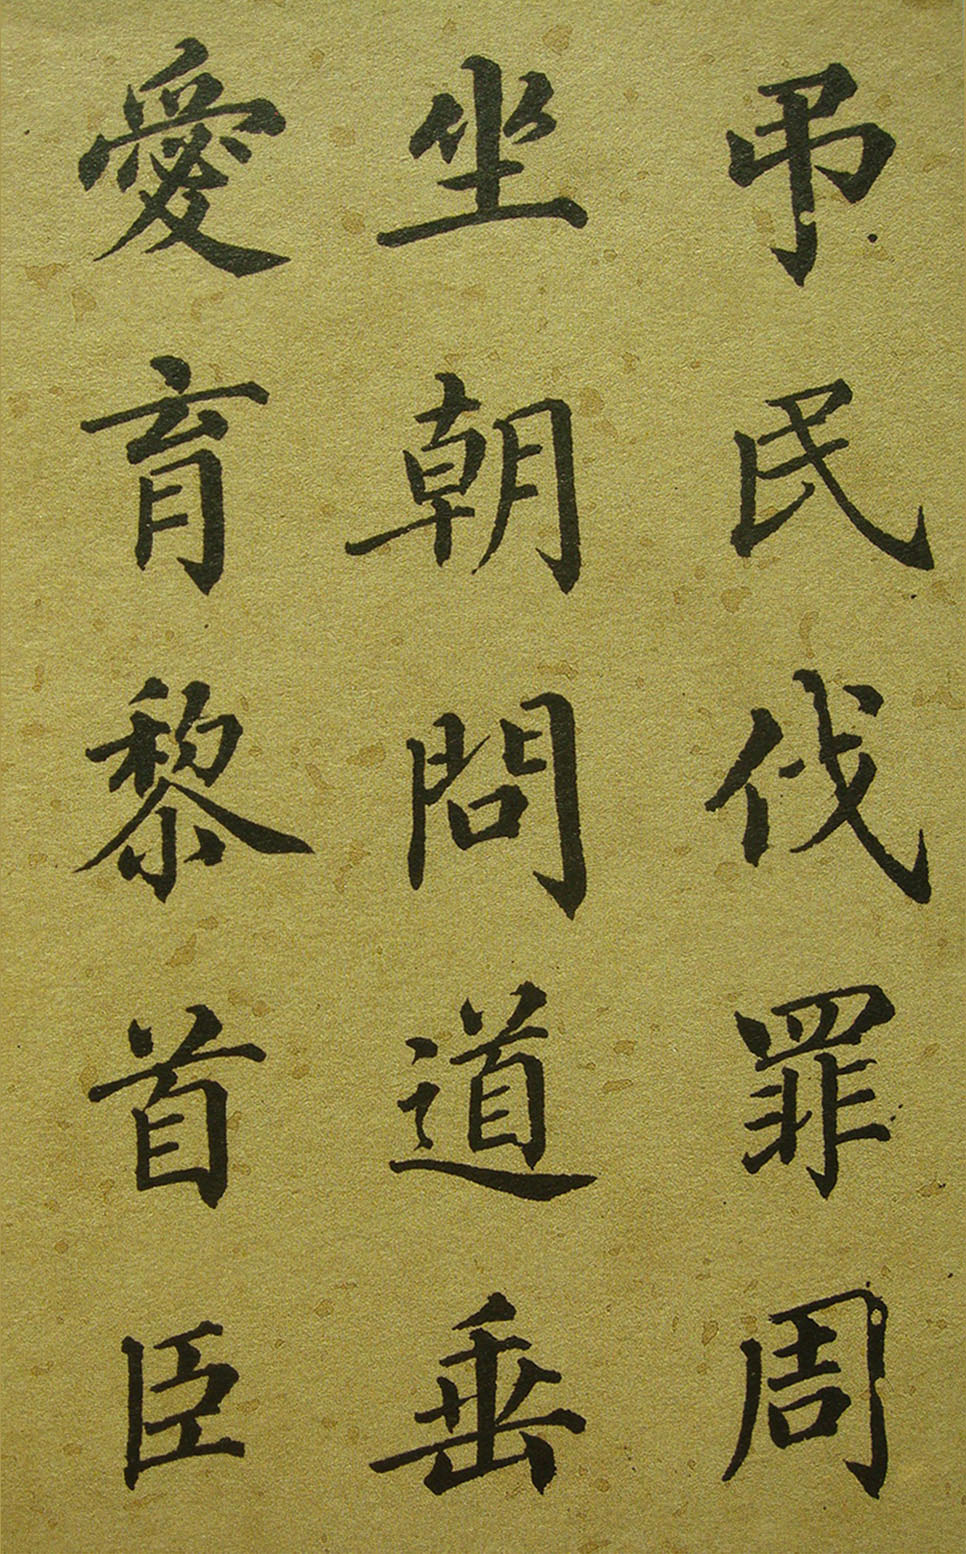 弔民伐罪周
坐朝問道垂
愛育黎首臣